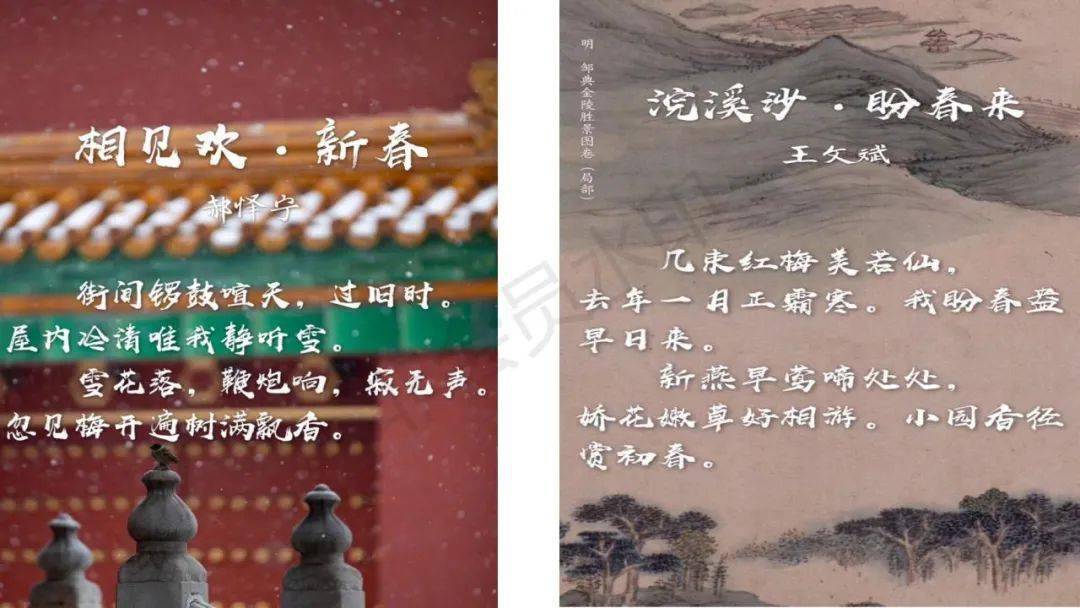 相见欢·新春
郝怿宁
街间锣鼓喧天，过旧时。
屋内冷清唯我静听雪。
雪花落，鞭炮响，寂无声。
忽见梅开遍树满飘香。
明 邹典金陵胜景图卷（局部）
浣溪沙·盼春来
王文斌
几束红梅美若仙，
去年一月正霜寒。我盼春盎
早日来。
新燕早莺啼处处，
娇花嫩草好相游。小园香径
赏初春。
员水印